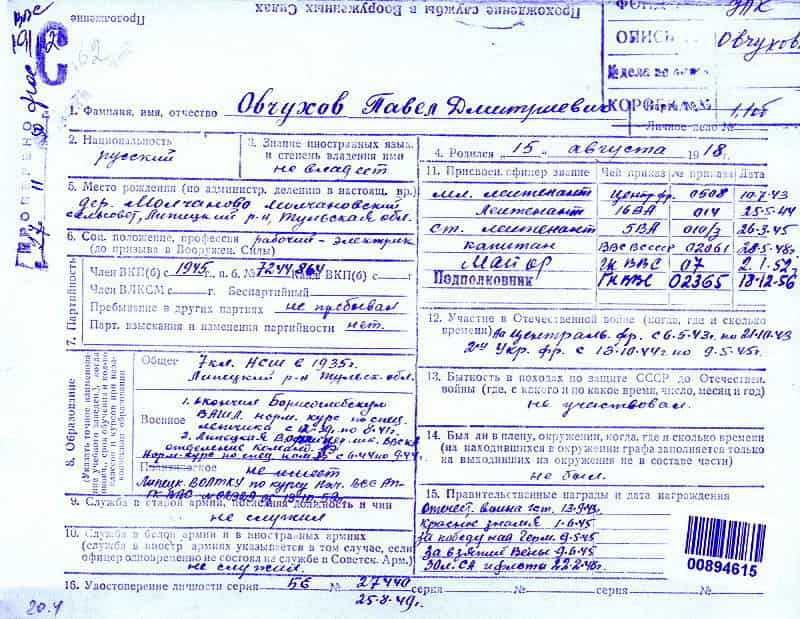 Прохождение службы в Вооруженных Силах
Продолжение
С
ПРОВЕРЕНО
ФОНД
ОПИСЬ Овчухов
№ дела
КОРОБКА № 1,106
Личное дело №
1. Фамилия, имя, отчество Овчухов Павел Дмитриевич
2. Национальность
русский
3. Знание иностранных язык.
и степень владения ими
не владеет
4. Родился „ 15 „ августа 1918 г.
5. Место рождения (по администр. делению в настоящ. вр.)
дер. Молчаново Молчановский
сельсовет, Липицкий р-н, Тульская обл.
6. Соц. положение, профессия рабочий - электрик
(до призыва в Вооружен. Силы)
7. Партийность
Член ВКП(б) с 1945 г. п. б. № 7244864 Канд. ВКП(б) с — г
Член ВЛКСМ с — г. Беспартийный
Пребывание в других партиях не пребывал
Парт. взыскания и изменения партийности нет.
8. Образование
(Указать точное наименование учебного заведен., когда
Общее 7 кл. НСШ в 1935 г.
Липицкий р-н Тульск. обл.
Военное
1. окончил Борисоглебскую
ВАШЛ норм. курс по спец.
летчика с 12-39г. по 8-41г.
2. Липецкая
отделение команд. АЭ
Норм. курс по спец. с 6.44 по 9.44г.
Политическое не имеет
Липецк. ВОЛТКУ по курсу Нач. ВСС
9. Служба в старой армии, последняя должность и чин
не служил
10. Служба в белой армии и в иностранных армиях
(служба в иностр армиях указывается в том случае, если
офицер одновременно не состоял на службе в Советск. Арм.)
не служил.
11. Присвоен. офицер звание Чей приказ № приказа Дата
мл. лейтенант Центр фр. 0508 10.7.43
Лейтенант 16 ВА 014 25-5-44
ст. лейтенант 5 ВА 010/з 26-3-45
капитан ВВС ВСССР 02061 28-5-48г.
Майор ГК ВВС 07 2.1.52.
Подполковник ГК ВВС 02365 18-12-56
12. Участие в Отечественной войне (когда, где и сколько
времени) на Централь. фр. с 6.5-43г. по 21-10-43
2ой Укр. фр. с 13-10.44г по 9-5.45г.
13. Бытность в походах по защите СССР до Отечествен.
войны (где, с какого и по какое время, число, месяц и год)
не участвовал.
14. Был ли в плену, окружении, когда, где и сколько времени
(на находившихся в окружении графа заполняется только
на выходивших из окружения не в составе части)
не был.
15. Правительственные награды и дата награждения
Отечест. война 1 ст. 13-9.43г.
Красное знамя 1-6.45
за победу над Герм. 9-5.45
За взятие Вены 9.6.45
30 л. СА и флота 22.2.48г.
00894615
16. Удостоверение личности серия ББ № 27440 серия № серия №
25-8-49г.
20.4